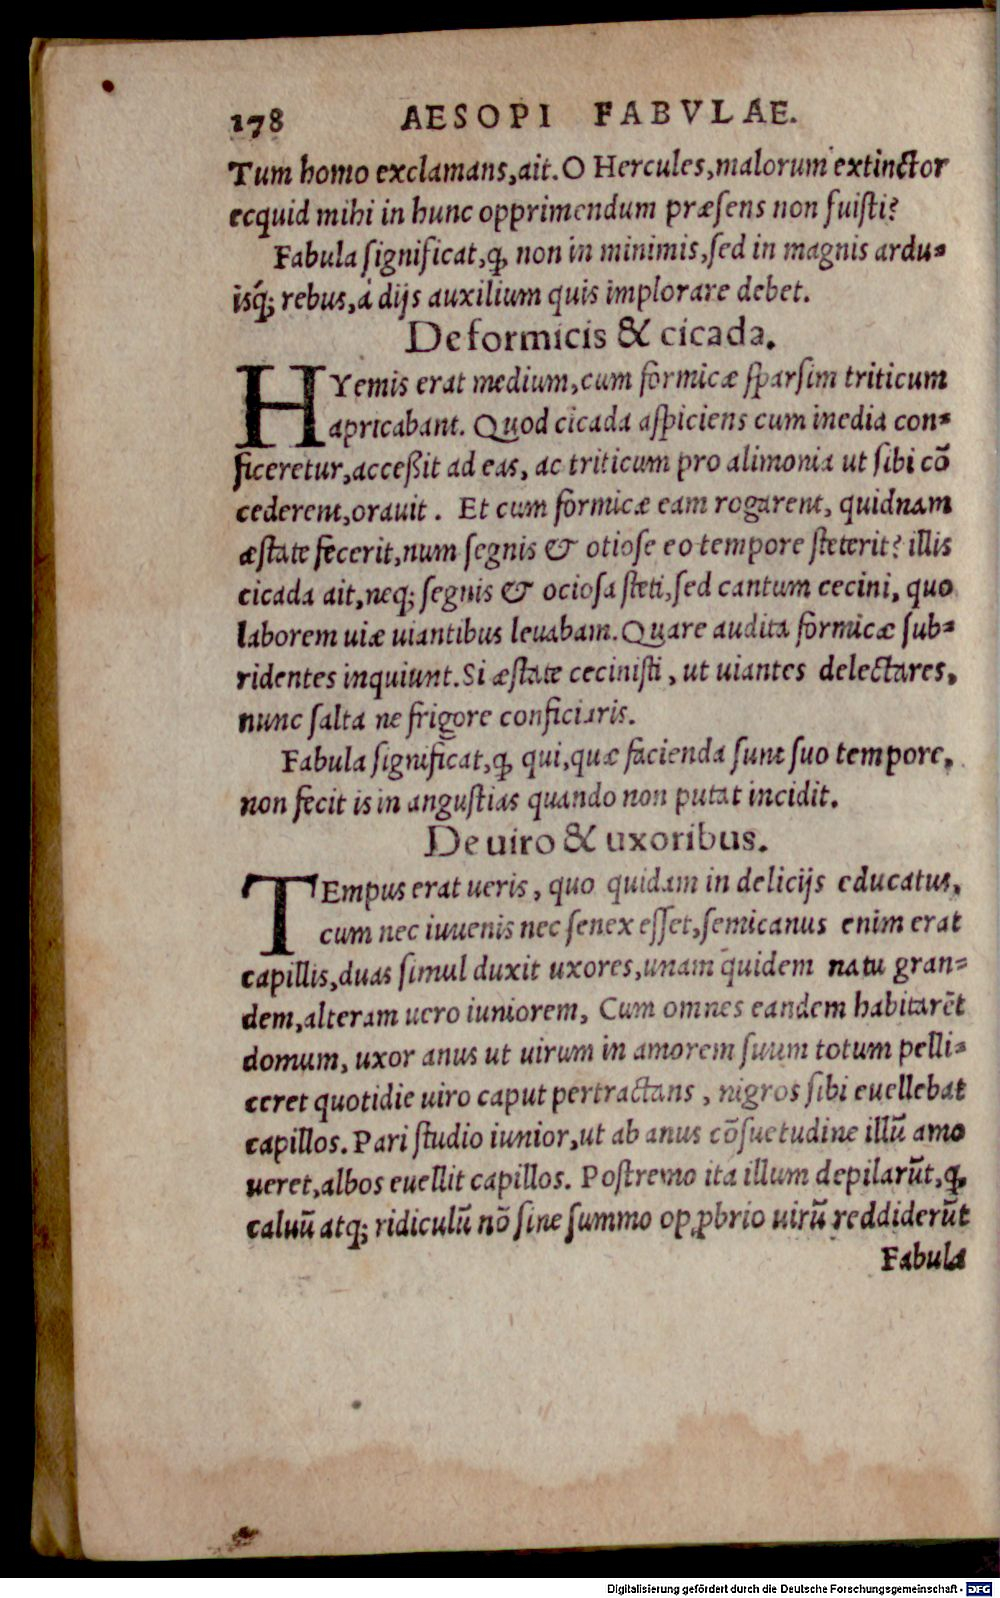 178 AESOPI FABVLAE.
Tum homo exclamans,ait.O Hercules,malorum extinctor
ecquid mihi in hunc opprimendum præsens non fuisti?
Fabula significat,ꝙ non in minimis,sed in magnis ardu-
isq́; rebus,á dijs auxilium quis implorare debet.
De formicis & cicada.
HYemis erat medium,cum formicæ sparsim triticum
apricabant. Quod cicada aspiciens cum inedia con-
ficeretur,acceßit ad eas, ac triticum pro alimonia ut sibi cō
cederent,orauit. Et cum formicæ eam rogarent, quidnam
æstate fecerit,num segnis & otiose eo tempore steterit? illis
cicada ait,neq; segnis & ociosa steti,sed cantum cecini, quo
laborem uiæ uiantibus leuabam.Quare audita formicæ sub-
ridentes inquiunt.Si æstate cecinisti, ut uiantes delectares,
nunc salta ne frigore conficiaris.
Fabula significat,ꝙ qui,quæ facienda sunt suo tempore,
non fecit is in angustias quando non putat incidit.
De uiro & uxoribus.
TEmpus erat ueris, quo quidam in delicijs educatus,
cum nec iuuenis nec senex esset,semicanus enim erat
capillis,duas simul duxit uxores,unam quidem natu gran-
dem,alteram uero iuniorem, Cum omnes eandem habitarēt
domum, uxor anus ut uirum in amorem suum totum pelli-
ceret quotidie uiro caput pertractans, nigros sibi euellebat
capillos.Pari studio iunior,ut ab anus cōsuetudine illū amo
ueret,albos euellit capillos. Postremo ita illum depilarūt,ꝙ
caluū atq; ridiculū nō sine summo opꝓbrio uirū reddiderūt
Fabula
Digitalisierung gefördert durch die Deutsche Forschungsgemeinschaft - DFG